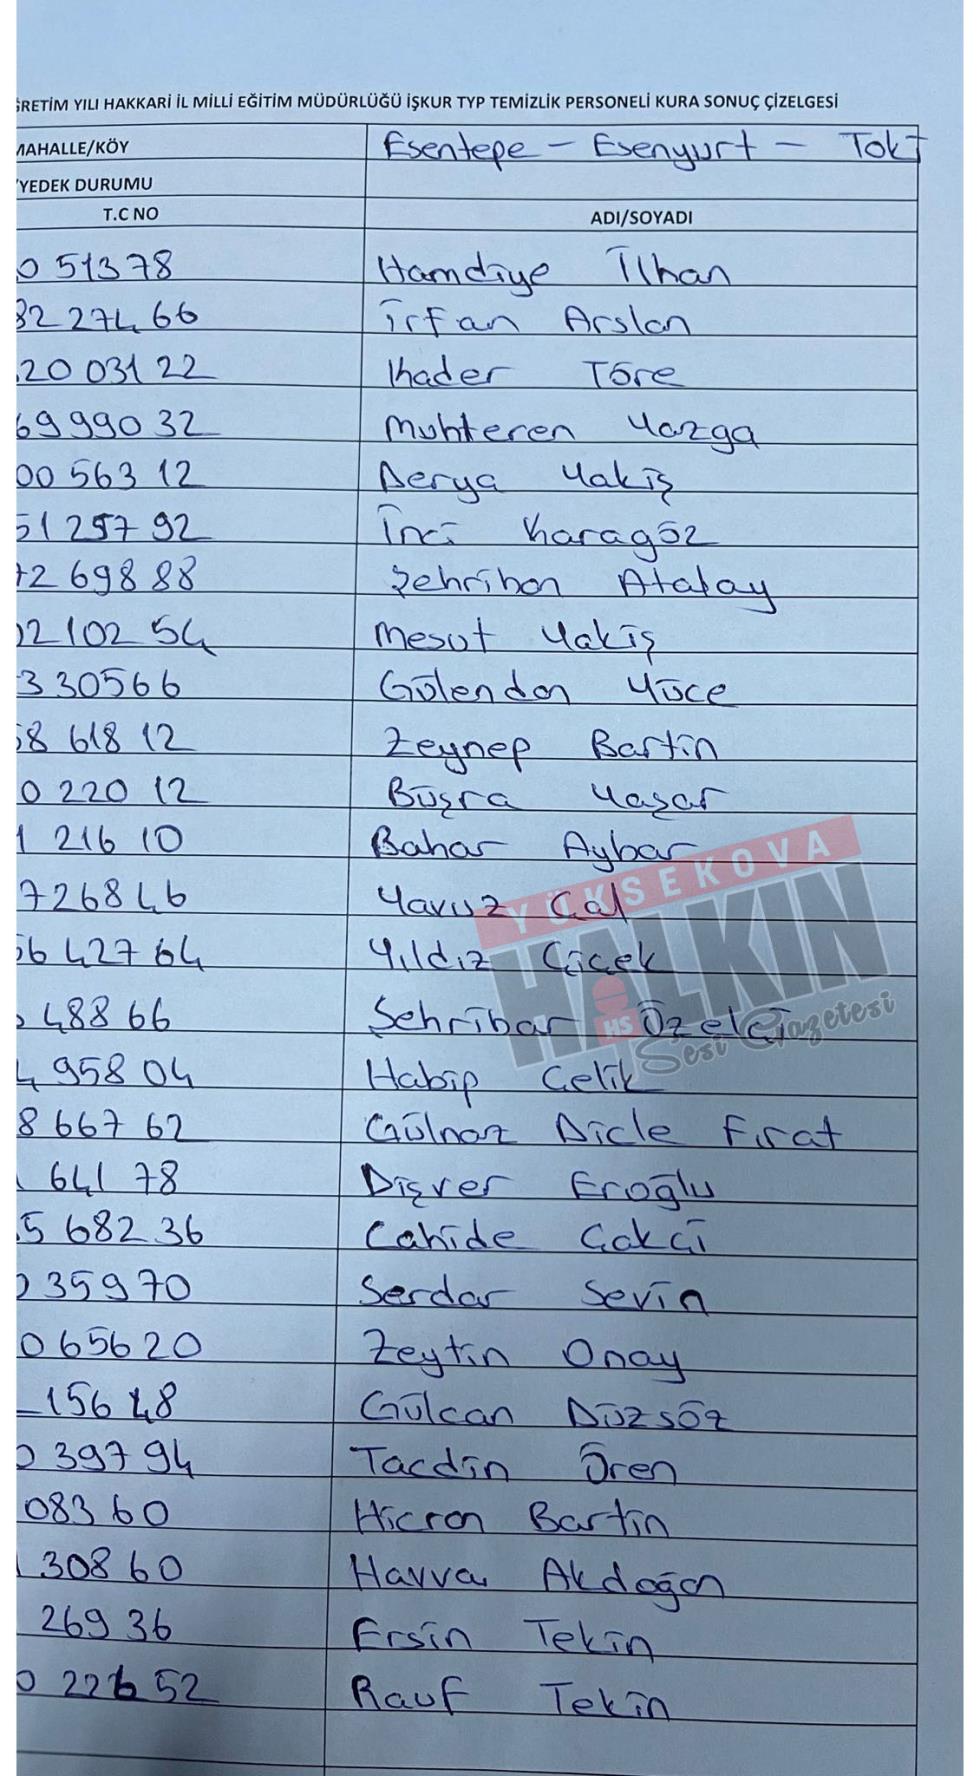 ĞRETİM YILI HAKKARİ İL MİLLİ EĞİTİM MÜDÜRLÜĞÜ İŞKUR TYP TEMİZLİK PERSONELİ KURA SONUÇ ÇİZELGESİ
MAHALLE/KÖY Esentepe - Esenyurt - Toki
YEDEK DURUMU
T.C NO ADI/SOYADI
0 51378 Hamdiye İlhan
82 274 66 İrfan Arslan
20 031 22 Kader Töre
69 990 32 Muhteren Yazga
00 563 12 Derya Yakiş
51 257 92 İnci Karagöz
72 698 88 Şehriban Atabay
02 102 54 Mesut Yakiş
3 305 66 Gülendan Yüce
58 618 12 Zeynep Bartin
0 220 12 Büşra Yaşar
1 216 10 Bahar Aybar
7268 46 Yavuz Çal
56 427 64 Yıldız Çiçek
488 66 Şehribar Özelçi
4 958 04 Habip Çelik
8 667 62 Gülnaz Dicle Fırat
641 78 Dişver Eroğlu
5 682 36 Cahide Çakçi
359 70 Serdar Sevin
0 656 20 Zeytin Onay
156 48 Gülcan Düzsöz
397 94 Tacdin Ören
083 60 Hicran Bartin
308 60 Havva Akdoğan
269 36 Ersin Tekin
0 226 52 Rauf Tekin
YÜKSEKOVA
HALKIN
HS
Sesi Gazetesi